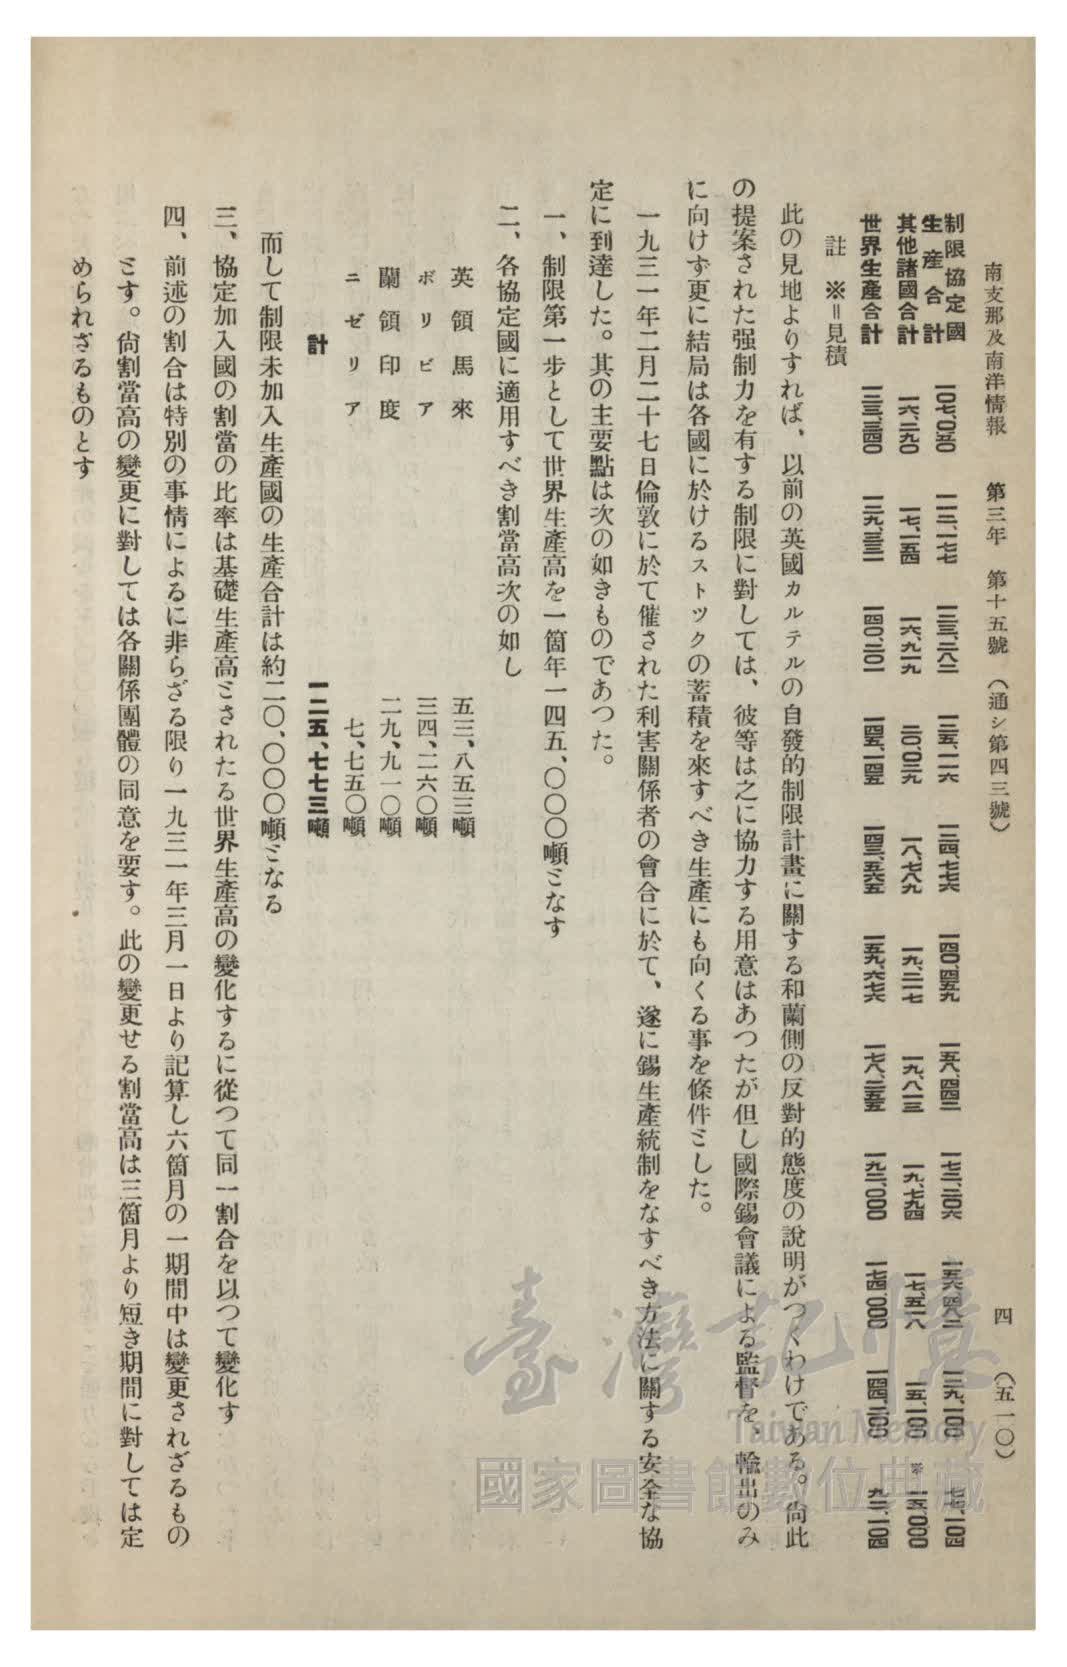 南支那及南洋情報　第三年　第十五號　（通シ第四三號）　四　（五一〇）
制限協定國
生産合計　一〇七、〇五〇　一一二、一七七　一二三、二八二　一二五、一一六　一二四、七七六　一四〇、四五九　一五八、四四二　一七二、二〇六　一五六、四八二　一二九、一〇〇　七七、一〇四
其他諸國合計　一六、二九〇　一七、一五四　一六、九一九　二〇、〇二九　一八、七八九　一九、二一七　一九、八一三　一九、七九四　一七、五一八　一五、一〇〇　※一五、〇〇〇
世界生産合計　一二三、三四〇　一二九、三三一　一四〇、二〇一　一四五、一四五　一四三、五六五　一五九、六七六　一七八、二五五　一九二、〇〇〇　一七四、〇〇〇　一四四、二〇〇　九二、一〇四
註　※＝見積
此の見地よりすれば、以前の英國カルテルの自發的制限計畫に關する和蘭側の反對的態度の說明がつくわけである。尙此
の提案された强制力を有する制限に對しては、彼等は之に協力する用意はあつたが但し國際錫會議による監督を、輸出のみ
に向けず更に結局は各國に於けるストツクの蓄積を來すべき生產にも向くる事を條件ミした。
一九三一年二月二十七日倫敦に於て催された利害關係者の會合に於て、遂に錫生產統制をなすべき方法に關する安全な協
定に到達した。其の主要點は次の如きものであつた。
一、制限第一步として世界生產高を一箇年一四五、〇〇〇噸ミなす
二、各協定國に適用すべき割當高次の如し
英領馬來　五三、八五三噸
ボリビア　三四、二六〇噸
蘭領印度　二九、九一〇噸
ニゼリア　七、七五〇噸
計　一二五、七七三噸
而して制限未加入生產國の生產合計は約二〇、〇〇〇噸ミなる
三、協定加入國の割當の比率は基礎生產高ミされたる世界生產高の變化するに從つて同一割合を以つて變化す
四、前述の割合は特別の事情によるに非らざる限り一九三一年三月一日より記算し六箇月の一期間中は變更されざるもの
ミす。尙割當高の變更に對しては各關係團體の同意を要す。此の變更せる割當高は三箇月より短き期間に對しては定
められざるものとす
臺灣記憶
Taiwan Memory
國家圖書館數位典藏